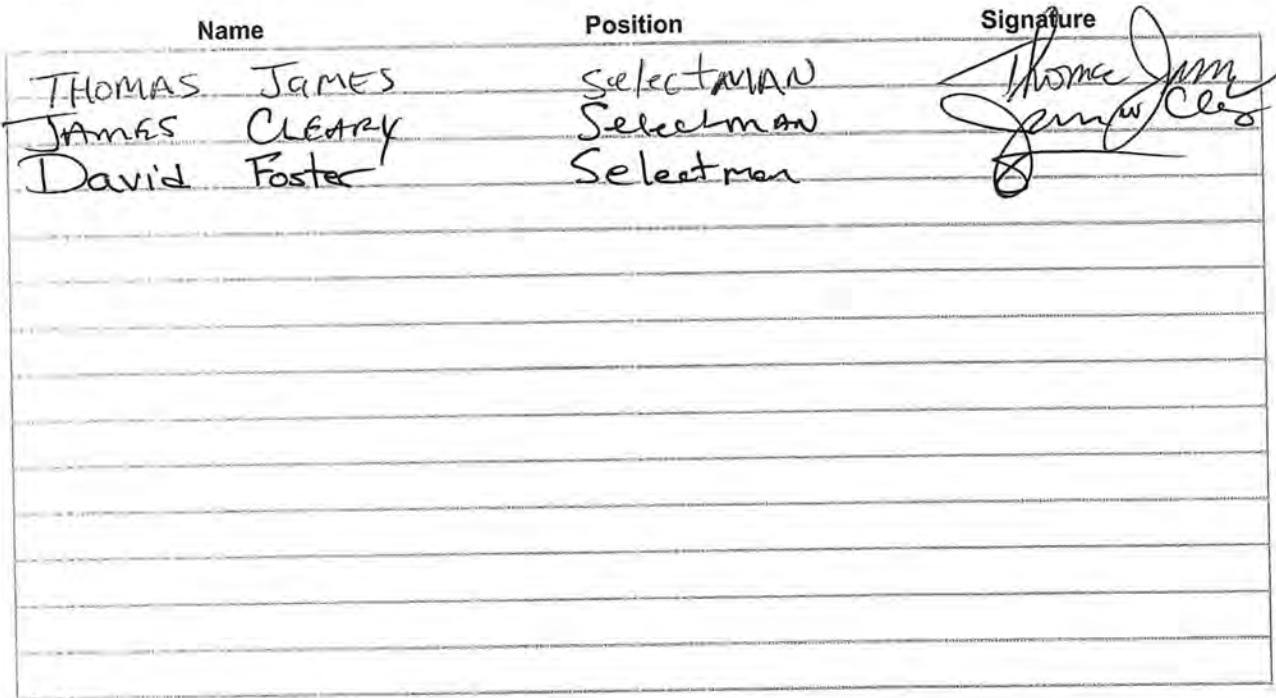 Name Position Signature
THOMAS JAMES SelectMAN Thomas James
JAMES CLEARY Selectman James W Cley
David Foster Selectman